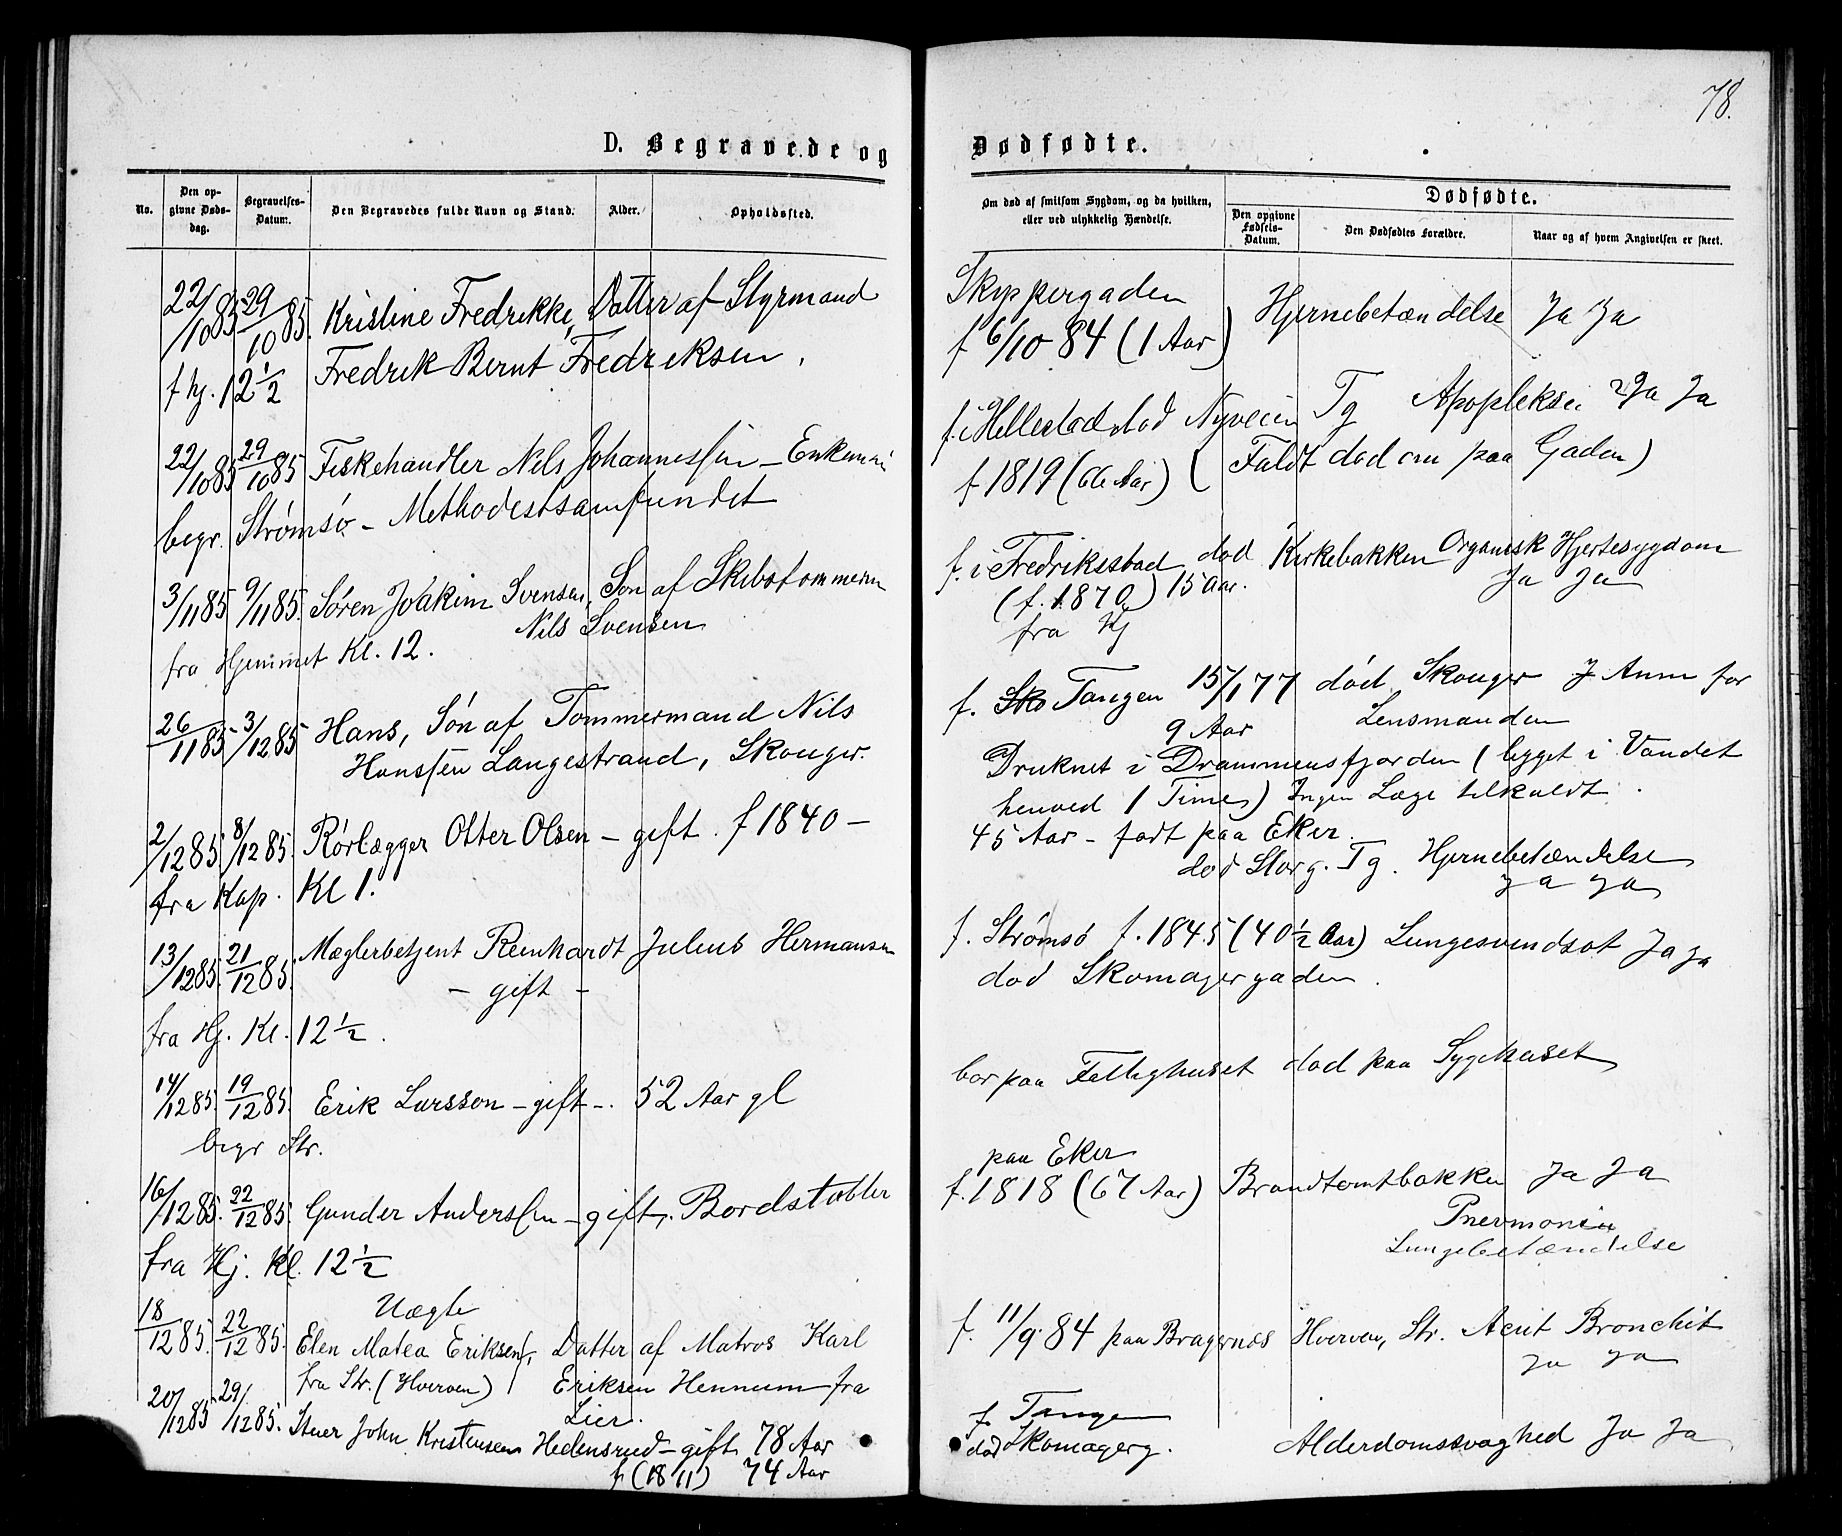 78.
D. Begravede og Dødfødte.
No.
Den opgivne Dødsdag.
Begravelses-Datum.
Den Begravedes fulde Navn og Stand.
Alder.
Opholdssted.
22/10 85 29/10 85. Kristine Fredrikke, Datter af Styrmand
f hj. 12½ Fredrik Bernt Fredriksen.
22/10 85 29/10 85 Fiskehandler Nils Johannessen – Enkeman
begr. Strømsø – Methodistsamfundet
3/11 85 9/11 85. Søren Joakim Svensen, Søn af Skibstømmerm
Nils Svensen
fra Hjemmet Kl. 12.
26/11 85 3/12 85 Hans, Søn af Tømmermand Nils
Hanssen Langestrand, Skouger.
2/12 85 8/12 85. Rørlægger Otter Olsen – gift. f 1840 –
fra Kap. Kl 1.
13/12 85. 21/12 85. Mæglerbetjent Reinhardt Julius Hermansen
– gift –
fra Hj. Kl. 12½.
14/12 85. 19/12 85. Erik Larsson – gift –. 52 Aar gl
begr Str.
16/12 85. 22/12 85. Gunder Anderssen – gift. Bordstabler
fra Hj. Kl. 12½
Uægte
18/12 85. 22/12 85. Elen Matea Eriksen, Datter af Matros Karl
fra Str. (Hverven) Eriksen Hennum fra
Lier.
20/12 85 29/12 85. Stuer John Kristensen Hedensrud – gift 78 Aar
f (1811) 74 Aar
Om død af smitsom Sygdom, og da hvilken, eller ved ulykkelig Hændelse.
Dødfødte.
Den opgivne Fødsels-Datum.
Den Dødfødtes Forældre.
Naar og af hvem Angivelsen er skeet.
Skippergaden
f 6/10 84 (1 Aar) Hjernebetændelse Ja Ja
f. i Hellestad død Nyveien Tg Apopleksi Ja Ja
f 1819 (66 Aar) (Faldt død om paa Gaden)
f. i Fredriksstad død Kirkebakken Organisk Hjertesygdom
(f. 1870) 15 Aar. Ja Ja
fra Hj
f. Sko Tangen 15/1 77 død Skouger J Anm for
9 Aar Lensmanden
Druknet i Drammensfjorden (ligget i Vandet
henved 1 Time) Ingen Læge tilkaldt.
45 Aar – født paa Eker.
død Storg. Tg. Hjernebetændelse
Ja Ja
f. Strømsø f. 1845 (40½ Aar) Lungesvindsot Ja Ja
død Skomagergaden.
bor paa Fattighuset død paa Sygehuset
paa Eker
f. 1818 (67 Aar) Brandtomtbakken Ja Ja
Pnevmonia
Lungebetændelse
f. 11/9 84 paa Bragernes Hverven, Str. Acut Bronchit
Ja Ja
f. Tangen
død Skomagerg. Alderdomssvaghed Ja Ja